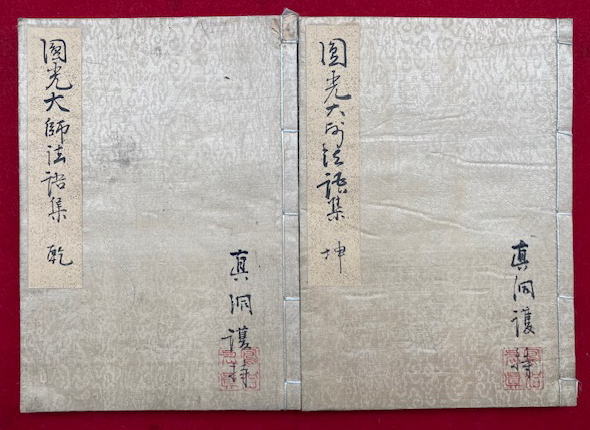 圓光大師法語集 乾
真洞護持
圓光大師法語集 坤
真洞護持